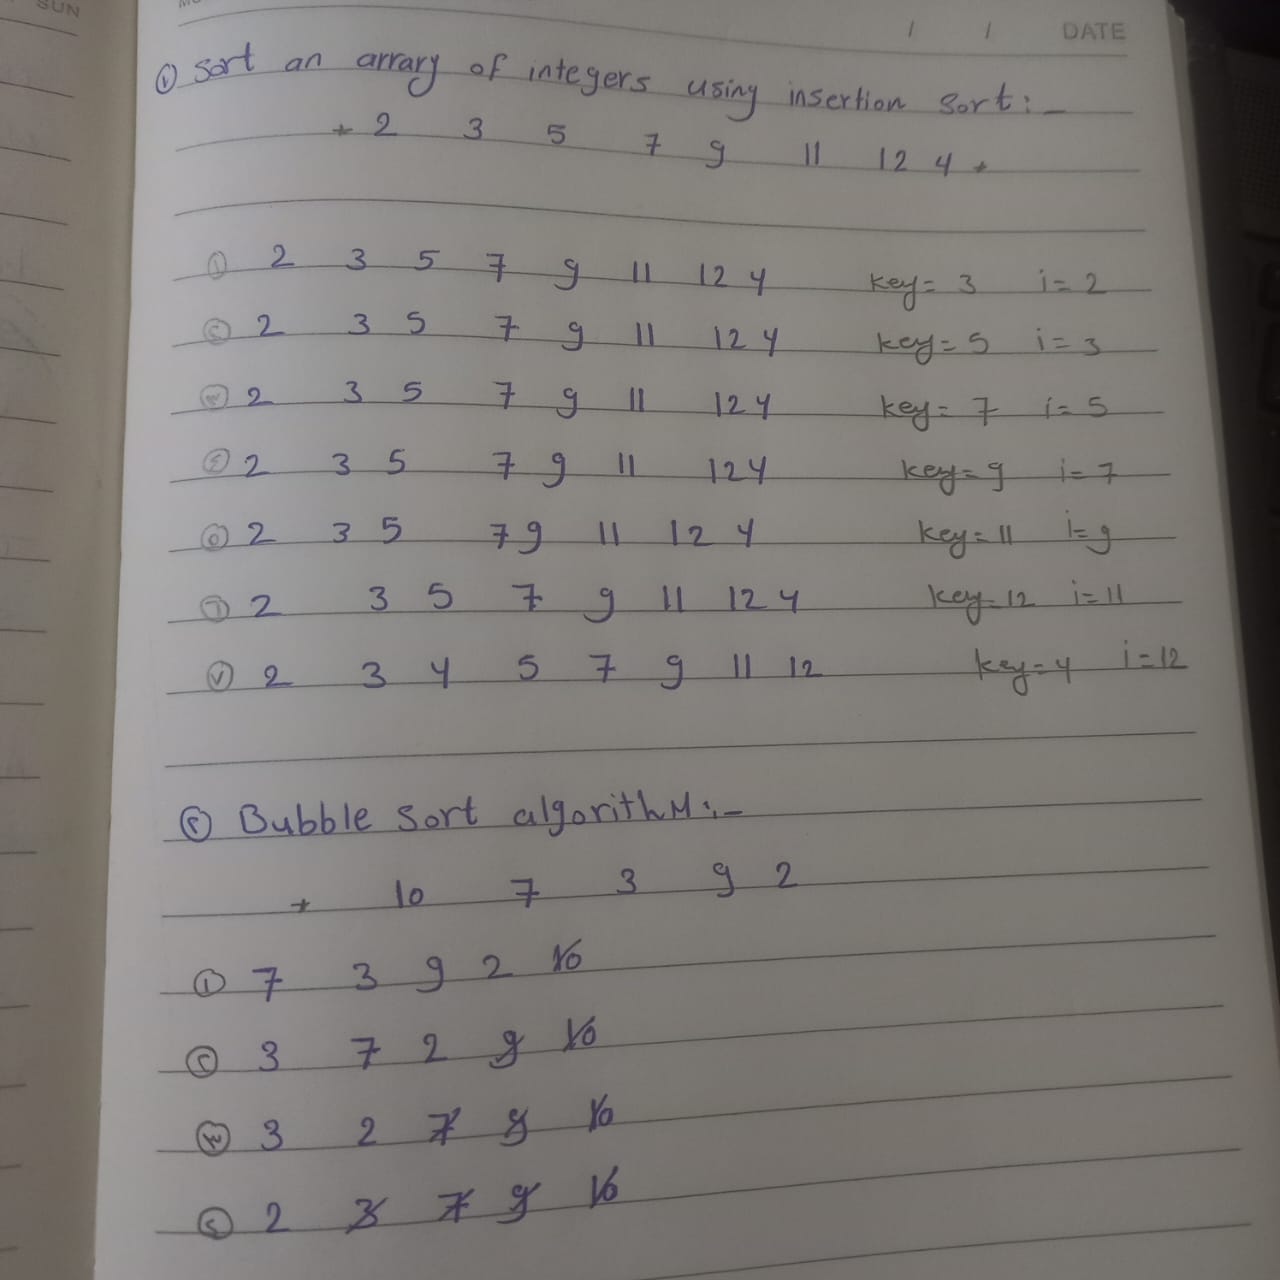 SUN
/ / DATE
① Sort an arrary of integers using insertion sort:-
* 2 3 5 7 9 11 12 4 *
① 2 3 5 7 9 11 12 4 key= 3 i= 2
② 2 3 5 7 9 11 12 4 key= 5 i= 3
③ 2 3 5 7 9 11 12 4 key= 7 i= 5
2 3 5 7 9 11 12 4 key= 9 i= 7
2 3 5 7 9 11 12 4 key= 11 i= 9
2 3 5 7 9 11 12 4 key= 12 i= 11
2 3 4 5 7 9 11 12 key= 4 i= 12
Bubble Sort algorithM:-
* 10 7 3 9 2
① 7 3 9 2 10
3 7 2 9 10
3 2 7 9 10
2 3 7 9 10